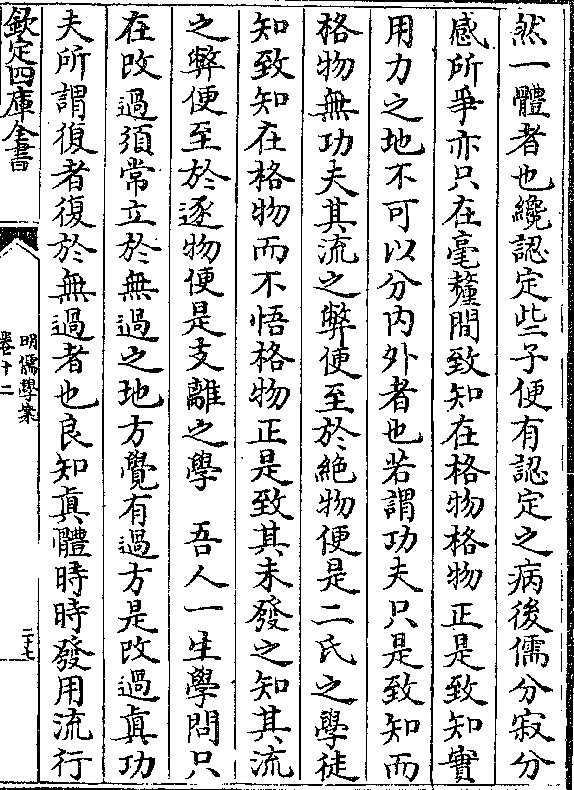 然一體者也纔認定些子便有認定之病後儒分寂分
感所爭亦只在毫釐間致知在格物格物正是致知實
用力之地不可以分内外者也若謂功夫只是致知而
格物無功夫其流之弊便至於絶物便是二氏之學徒
知致知在格物而不悟格物正是致其未發之知其流
之弊便至於逐物便是支離之學　吾人一生學問只
在改過須常立於無過之地方覺有過方是改過真功
夫所謂復者復於無過者也良知真體時時發用流行
欽定四庫全書
明儒學案
卷十二
二七